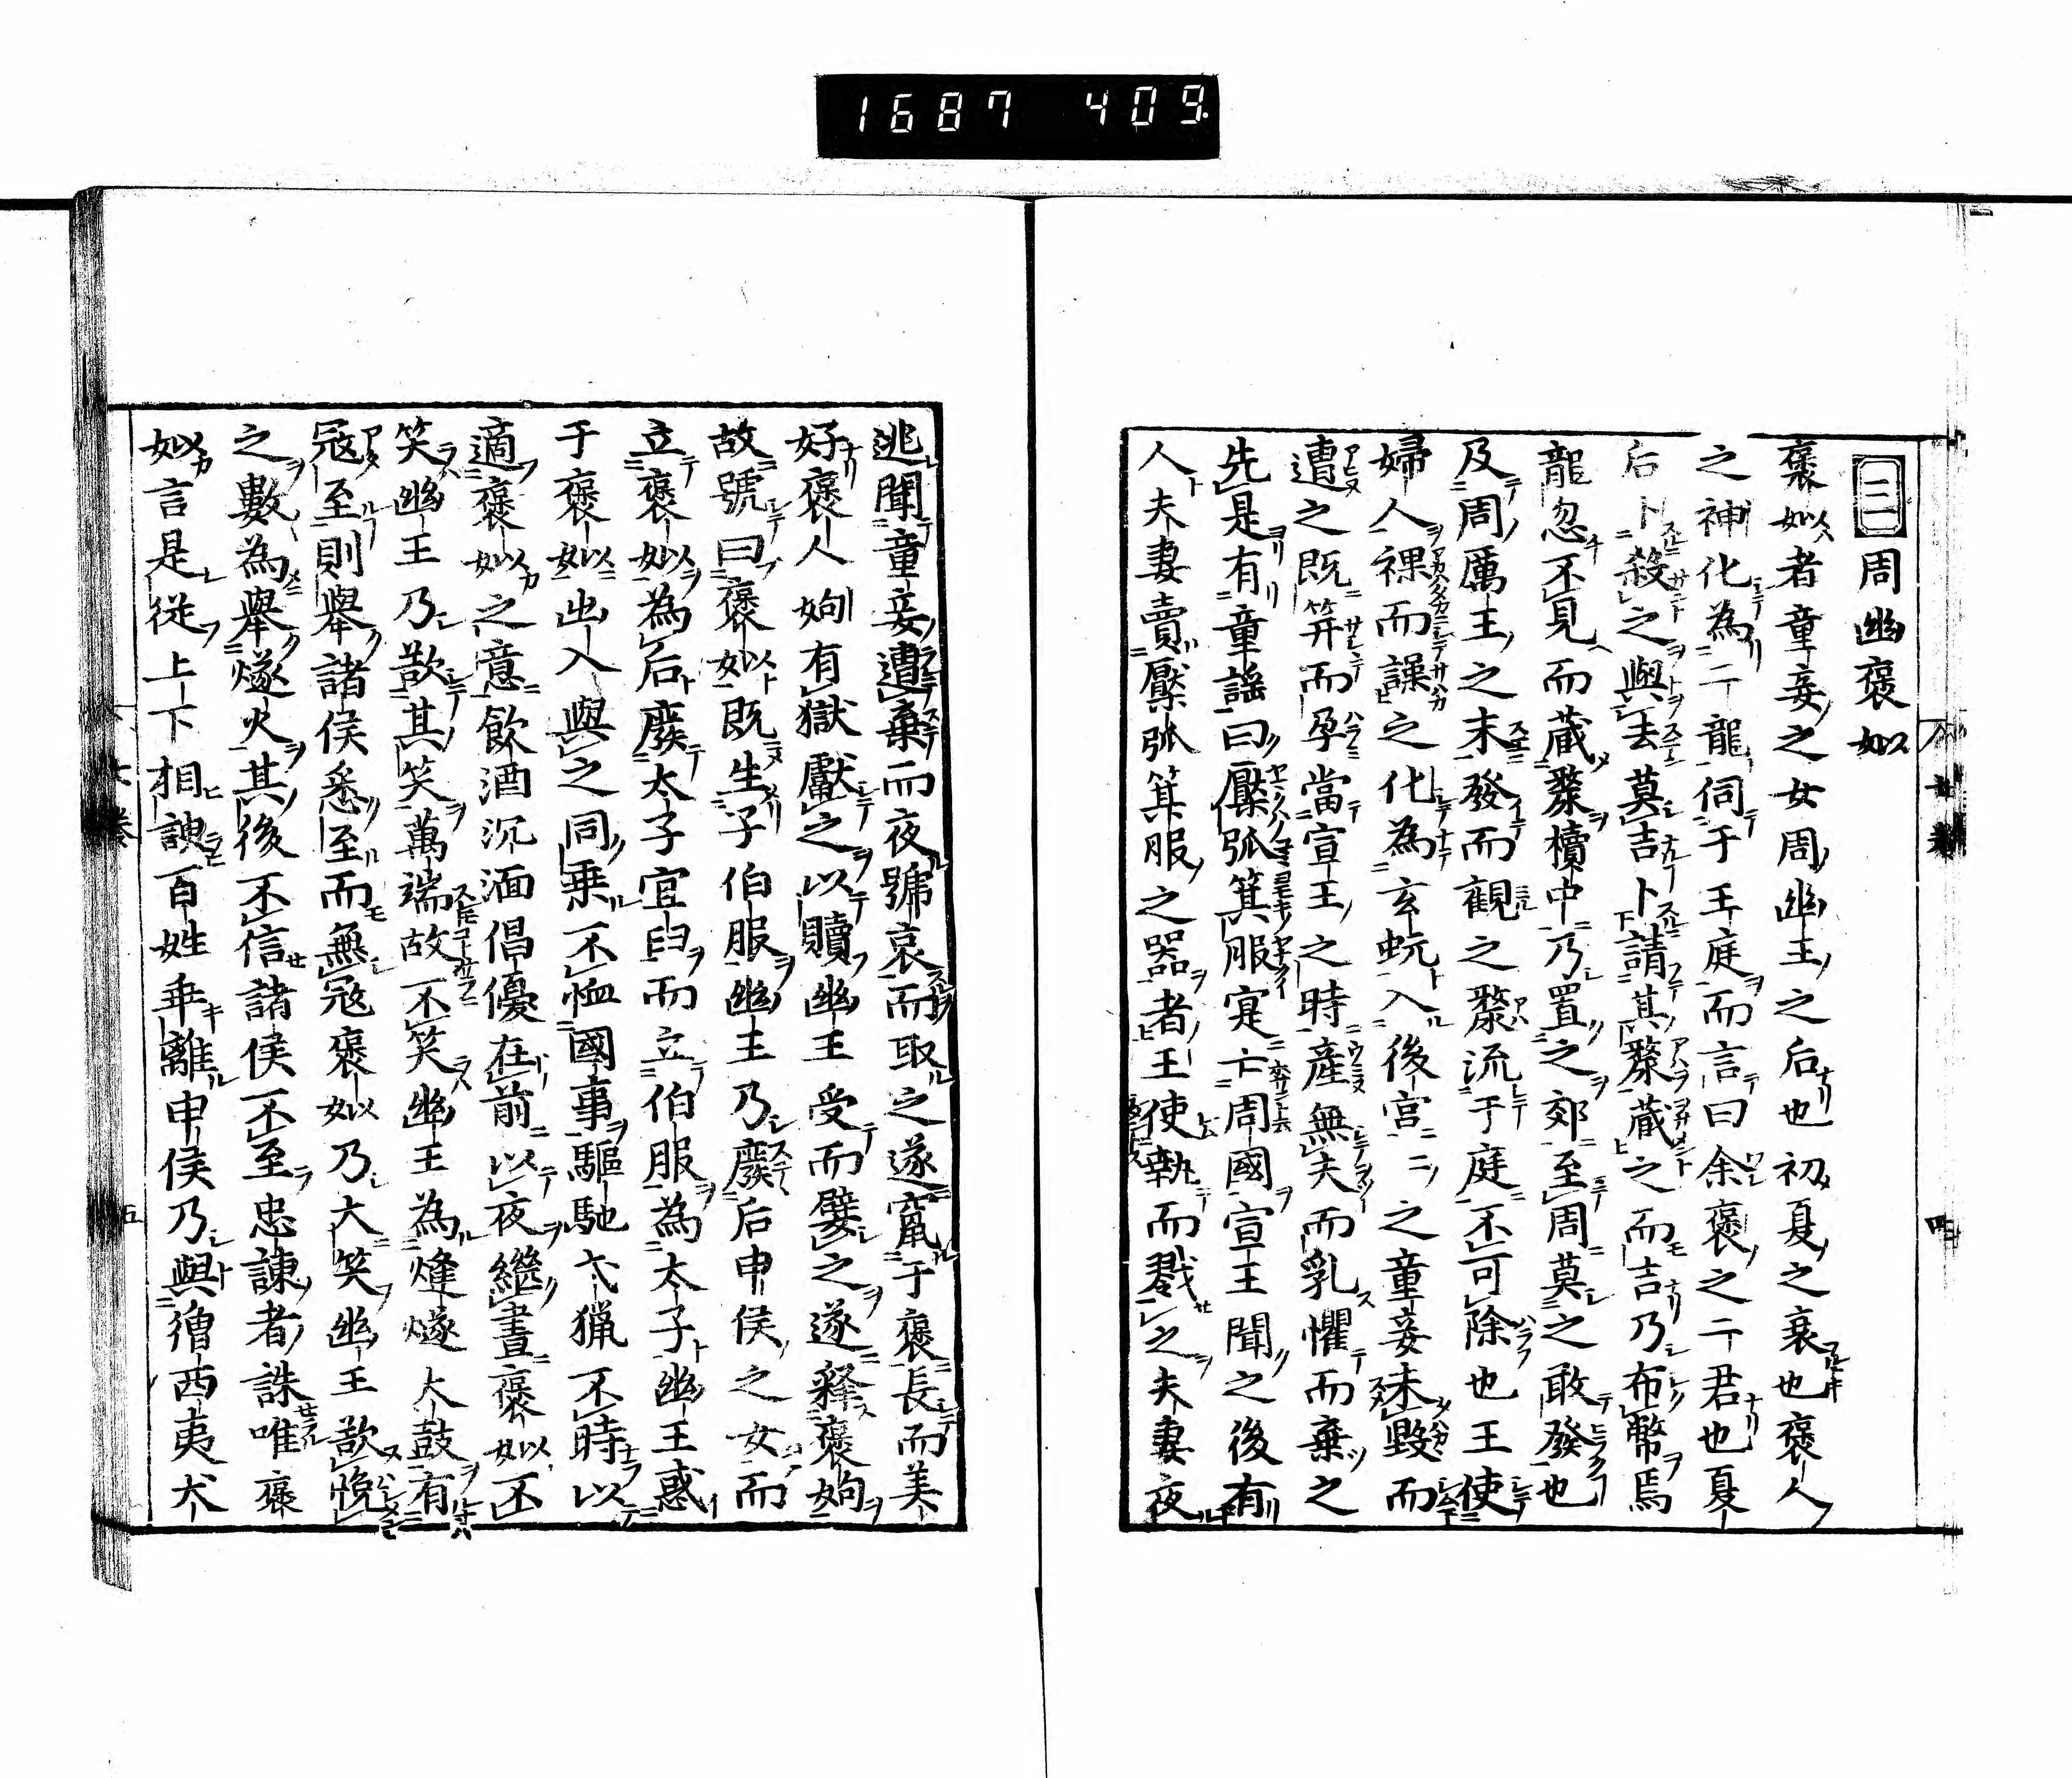 1687 409
三 周幽褒姒
褒姒者童妾之女周幽王之后也初夏之衰也褒人
之神化為二龍伺于王庭而言曰余褒之二君也夏
后卜殺之與去莫吉卜請其漦藏之而吉乃布幣焉
龍忽不見而藏漦櫝中乃置之郊至周莫之敢發也
及周厲王之末發而觀之漦流于庭不可除也王使
婦人裸而譟之化為玄蚖入後宮宮之童妾未毀而
遭之既笄而孕當宣王之時產無夫而乳懼而棄之
先是有童謠曰檿弧箕服寔亡周國宣王聞之後有
人夫妻賣檿弧箕服之器者王使執而戮之夫妻夜
逃聞童妾遭棄而夜號哀而取之遂竄于褒長而美
好褒人姁有獄獻之以贖幽王受而嬖之遂釋褒姁
故號曰褒姒既生子伯服幽王乃廢后申侯之女而
立褒姒為后廢太子宜臼而立伯服為太子幽王惑
于褒姒出入與之同乗不恤國事驅馳弋猟不時以
適褒姒之意飲酒沉湎倡優在前以夜繼晝褒姒不
笑幽王乃欲其笑萬端故不笑幽王為熢燧大鼓有
冦至則舉諸侯悉至而無冦褒姒乃大笑幽王欲悅
之數為舉燧火其後不信諸侯不至忠諫者誅唯褒
姒言是從上下相諛百姓乖離申侯乃與繒西夷犬